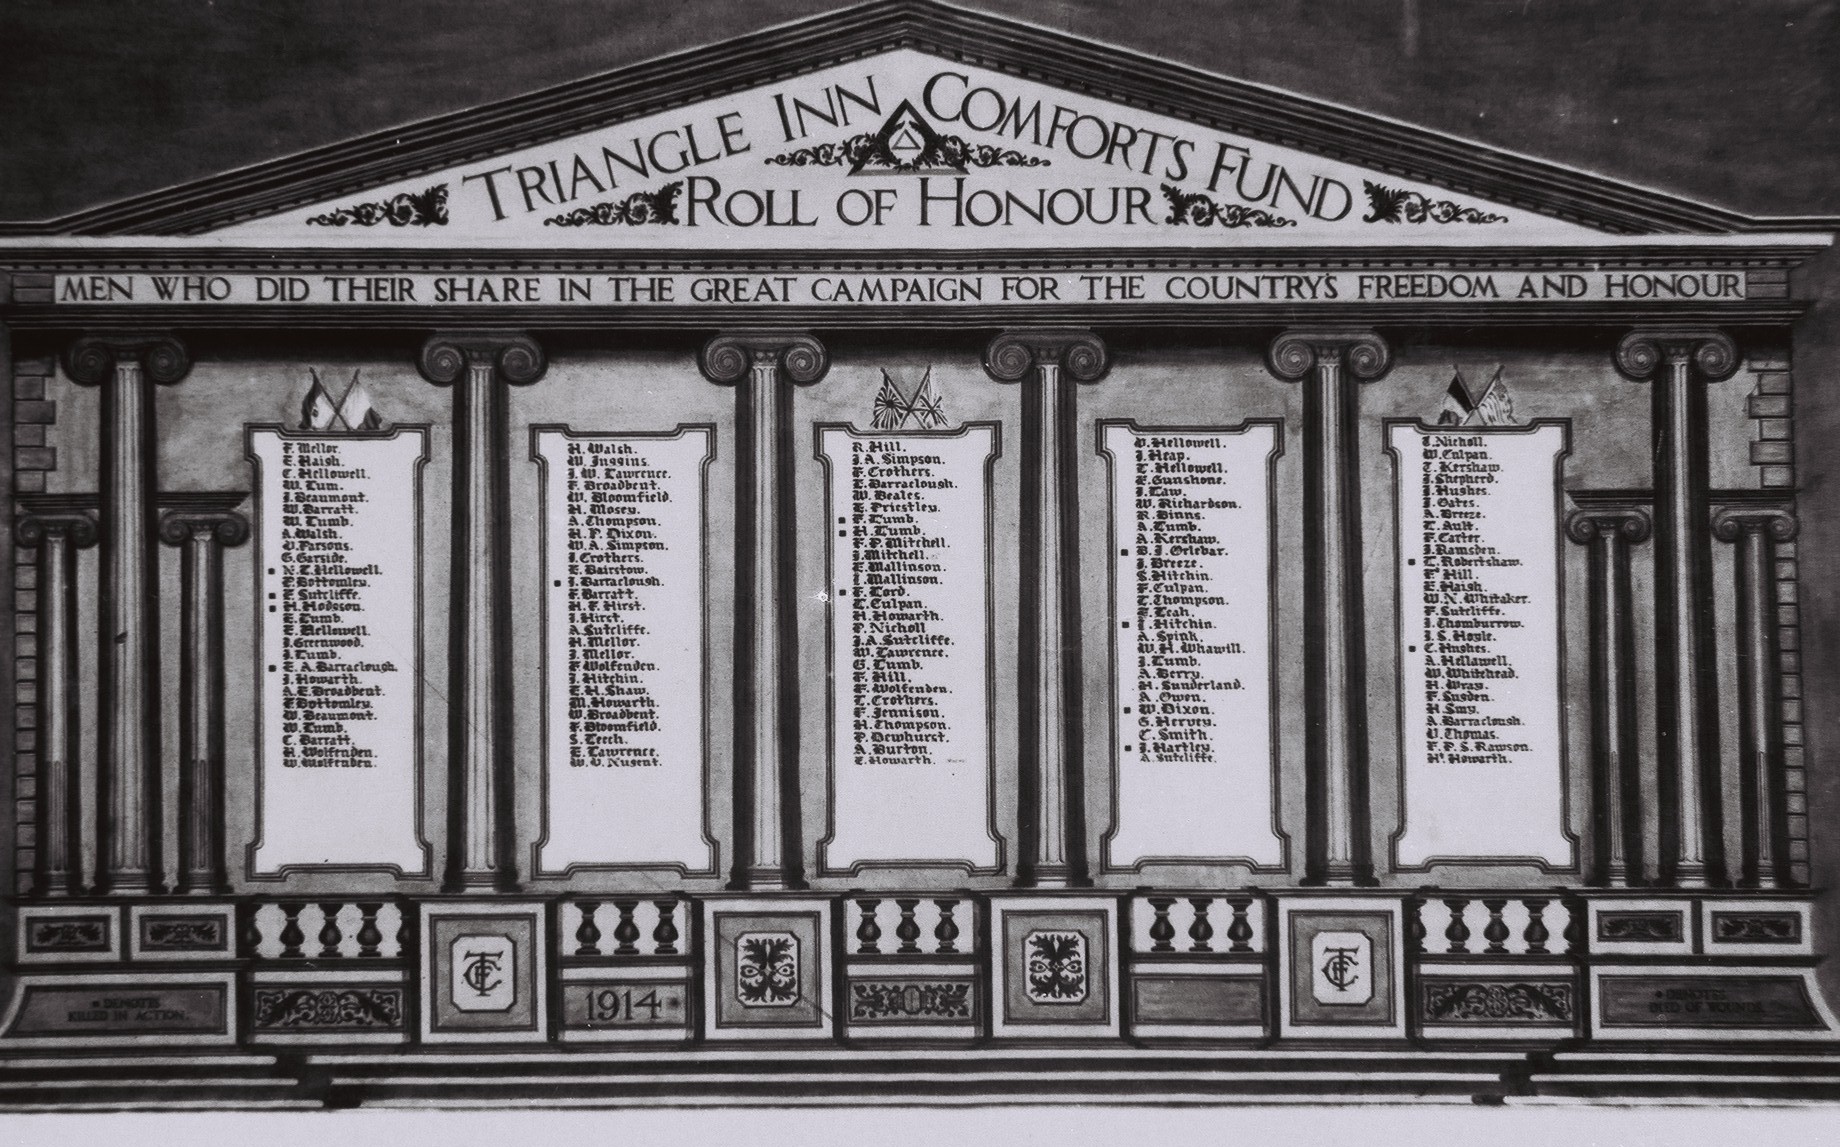 TRIANGLE INN COMFORTS FUND
ROLL OF HONOUR
MEN WHO DID THEIR SHARE IN THE GREAT CAMPAIGN FOR THE COUNTRY'S FREEDOM AND HONOUR
F. Mellor.
E. Haigh.
C. Hellowell.
W. Lum.
J. Beaumont.
W. Barratt.
W. Lumb.
A. Walsh.
V. Parsons.
G. Garside.
▪ N. T. Hellowell.
P. Bottomley.
▪ E. Sutcliffe.
▪ H. Hodgson.
E. Lumb.
E. Hellowell.
J. Greenwood.
J. Lumb.
▪ E. A. Barraclough.
J. Howarth.
A. E. Broadbent.
F. Bottomley.
W. Beaumont.
W. Lumb.
C. Barratt.
H. Wolfenden.
W. Wolfenden.
H. Walsh.
W. Juggins.
J. W. Lawrence.
F. Broadbent.
W. Bloomfield.
H. Mosey.
A. Thompson.
H. P. Dixon.
W. A. Simpson.
J. Crothers.
E. Bairstow.
▪ J. Barraclough.
F. Barratt.
H. F. Hirst.
J. Hirst.
A. Sutcliffe.
H. Mellor.
J. Mellor.
F. Wolfenden.
J. Hitchin.
E. H. Shaw.
M. Howarth.
W. Broadbent.
F. Bloomfield.
S. Leech.
E. Lawrence.
W. V. Nugent.
R. Hill.
J. A. Simpson.
F. Crothers.
E. Barraclough.
W. Beales.
E. Priestley.
▪ F. Lumb.
▪ H. Lumb.
F. P. Mitchell.
J. Mitchell.
E. Mallinson.
I. Mallinson.
▪ F. Lord.
T. Culpan.
H. Howarth.
P. Nicholl
J. A. Sutcliffe.
W. Lawrence.
G. Lumb.
F. Hill.
F. Wolfenden.
T. Crothers.
F. Jennison.
H. Thompson.
P. Dewhurst.
A. Burton.
E. Howarth.
V. Hellowell.
J. Heap.
T. Hellowell.
E. Gunshone.
J. Law.
W. Richardson.
R. Binns.
A. Lumb.
A. Kershaw.
▪ B. J. Orlebar.
J. Breeze.
S. Hitchin.
F. Culpan.
T. Thompson.
E. Leah.
▪ T. Hitchin.
A. Spink.
W. H. Whawill.
J. Lumb.
A. Berry.
H. Sunderland.
A. Owen.
▪ W. Dixon.
G. Hervey.
C. Smith.
▪ J. Hartley.
A. Sutcliffe.
T. Nicholl.
W. Culpan.
T. Kershaw.
J. Shepherd.
J. Hughes.
J. Gates.
A. Breeze.
T. Ault.
F. Carter.
J. Ramsden.
▪ T. Robertshaw.
Fk Hill.
E. Haigh.
W. N. Whitaker.
F. Sutcliffe.
J. Thomburrow.
J. S. Hoyle.
▪ C. Hughes.
A. Hellawell.
W. Whitehead.
H. Wray.
F. Sugden.
H. Smy.
A. Barraclough.
V. Thomas.
F. P. S. Rawson.
Hy. Howarth.
TICF
1914
TICF
▪ DENOTES
KILLED IN ACTION.
DENOTES
DIED OF WOUNDS.